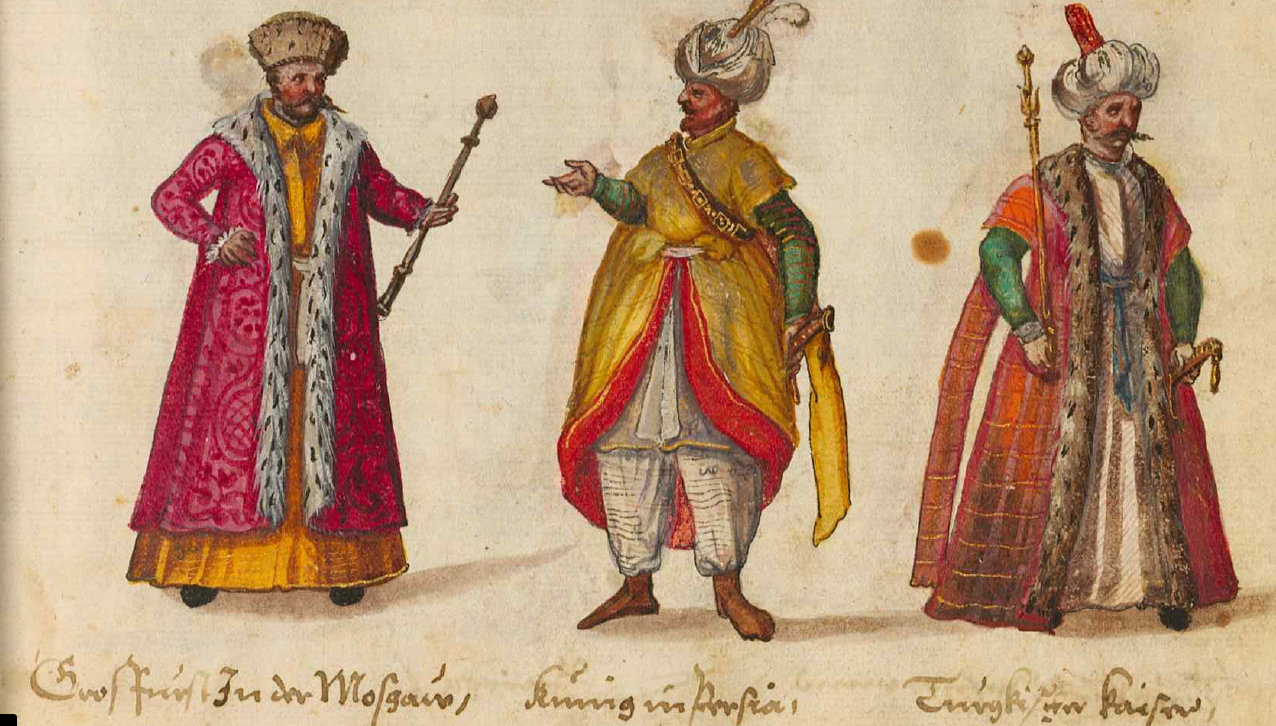 Grosfürst In der Mosgaw,
Künig in Persia,
Türgkischer Kaiser,